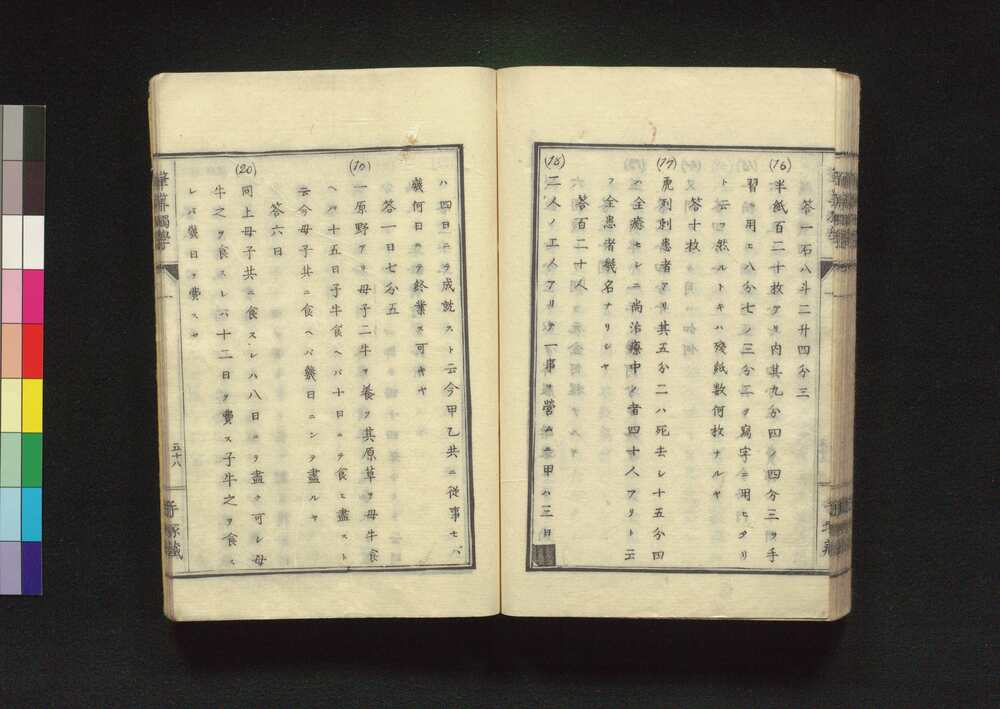 答一石八斗二升四分三
(16) 半紙百二十枚アリ内其九分四ノ四分三ヲ手
習ニ用ヒ八分七ノ三分二ヲ寫字ニ用ヒタリ
ト云フ然ルトキハ殘紙数何枚ナルヤ
答十枚
(17) 虎列剌患者アリ其五分二ハ死去レ十五分四
ハ全癒セレニ尚治療中ノ者四十人アリト云
フ全患者幾名ナリレヤ
答百二十人
(18) 二人ノ工人アリテ一事ヲ營ムニ甲ハ三日
ハ四日ニテ成就スト云今甲乙共ニ従事セバ
幾何日ニテ終業ス可キヤ
答一日七分五
(19) 一原野アリ母子二牛ヲ養フ其原草ヲ母牛食
ヘバ十五日子牛食ヘバ十日ニテ食ヒ盡スト
云今母子共ニ食ヘバ幾日ニシテ盡ルヤ
答六日
(20) 同上母子共ニ食スレハ八日ニテ盡ク可レ母
牛之ヲ食スレバ十二日ヲ費ス子牛之ヲ食ス
レバ幾日ヲ費スヤ
五十八